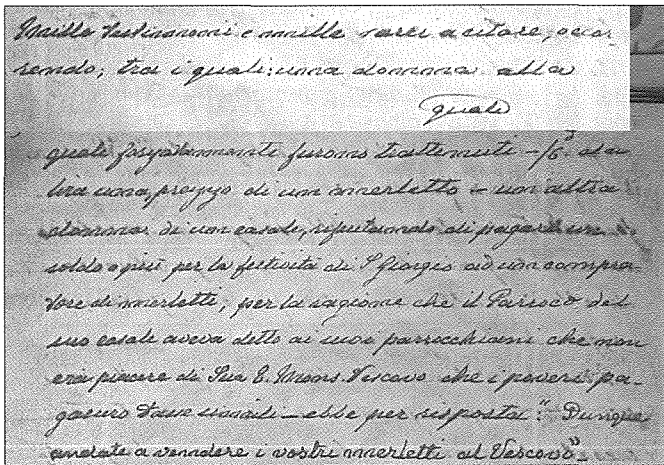 Mille testimoni e mille sarei a citare, occor
rendo; tra i quali: una donna alla
quale
quale forzatamente furono trattenuti
lira una, prezzo di un merletto – un'altra
donna di un casale, rifiutando di pagare un
soldo o più per la festività di S Giorgio ad un compra-
tore di merletti, per la ragione che il Parroco del
suo casale aveva detto ai suoi parrocchiani che non
era piacere di Sua E. Mons. Vescovo che i poveri pa-
gassero tasse – ebbe per risposta: "Dunque
andate a vendere i vostri merletti al Vescovo"–